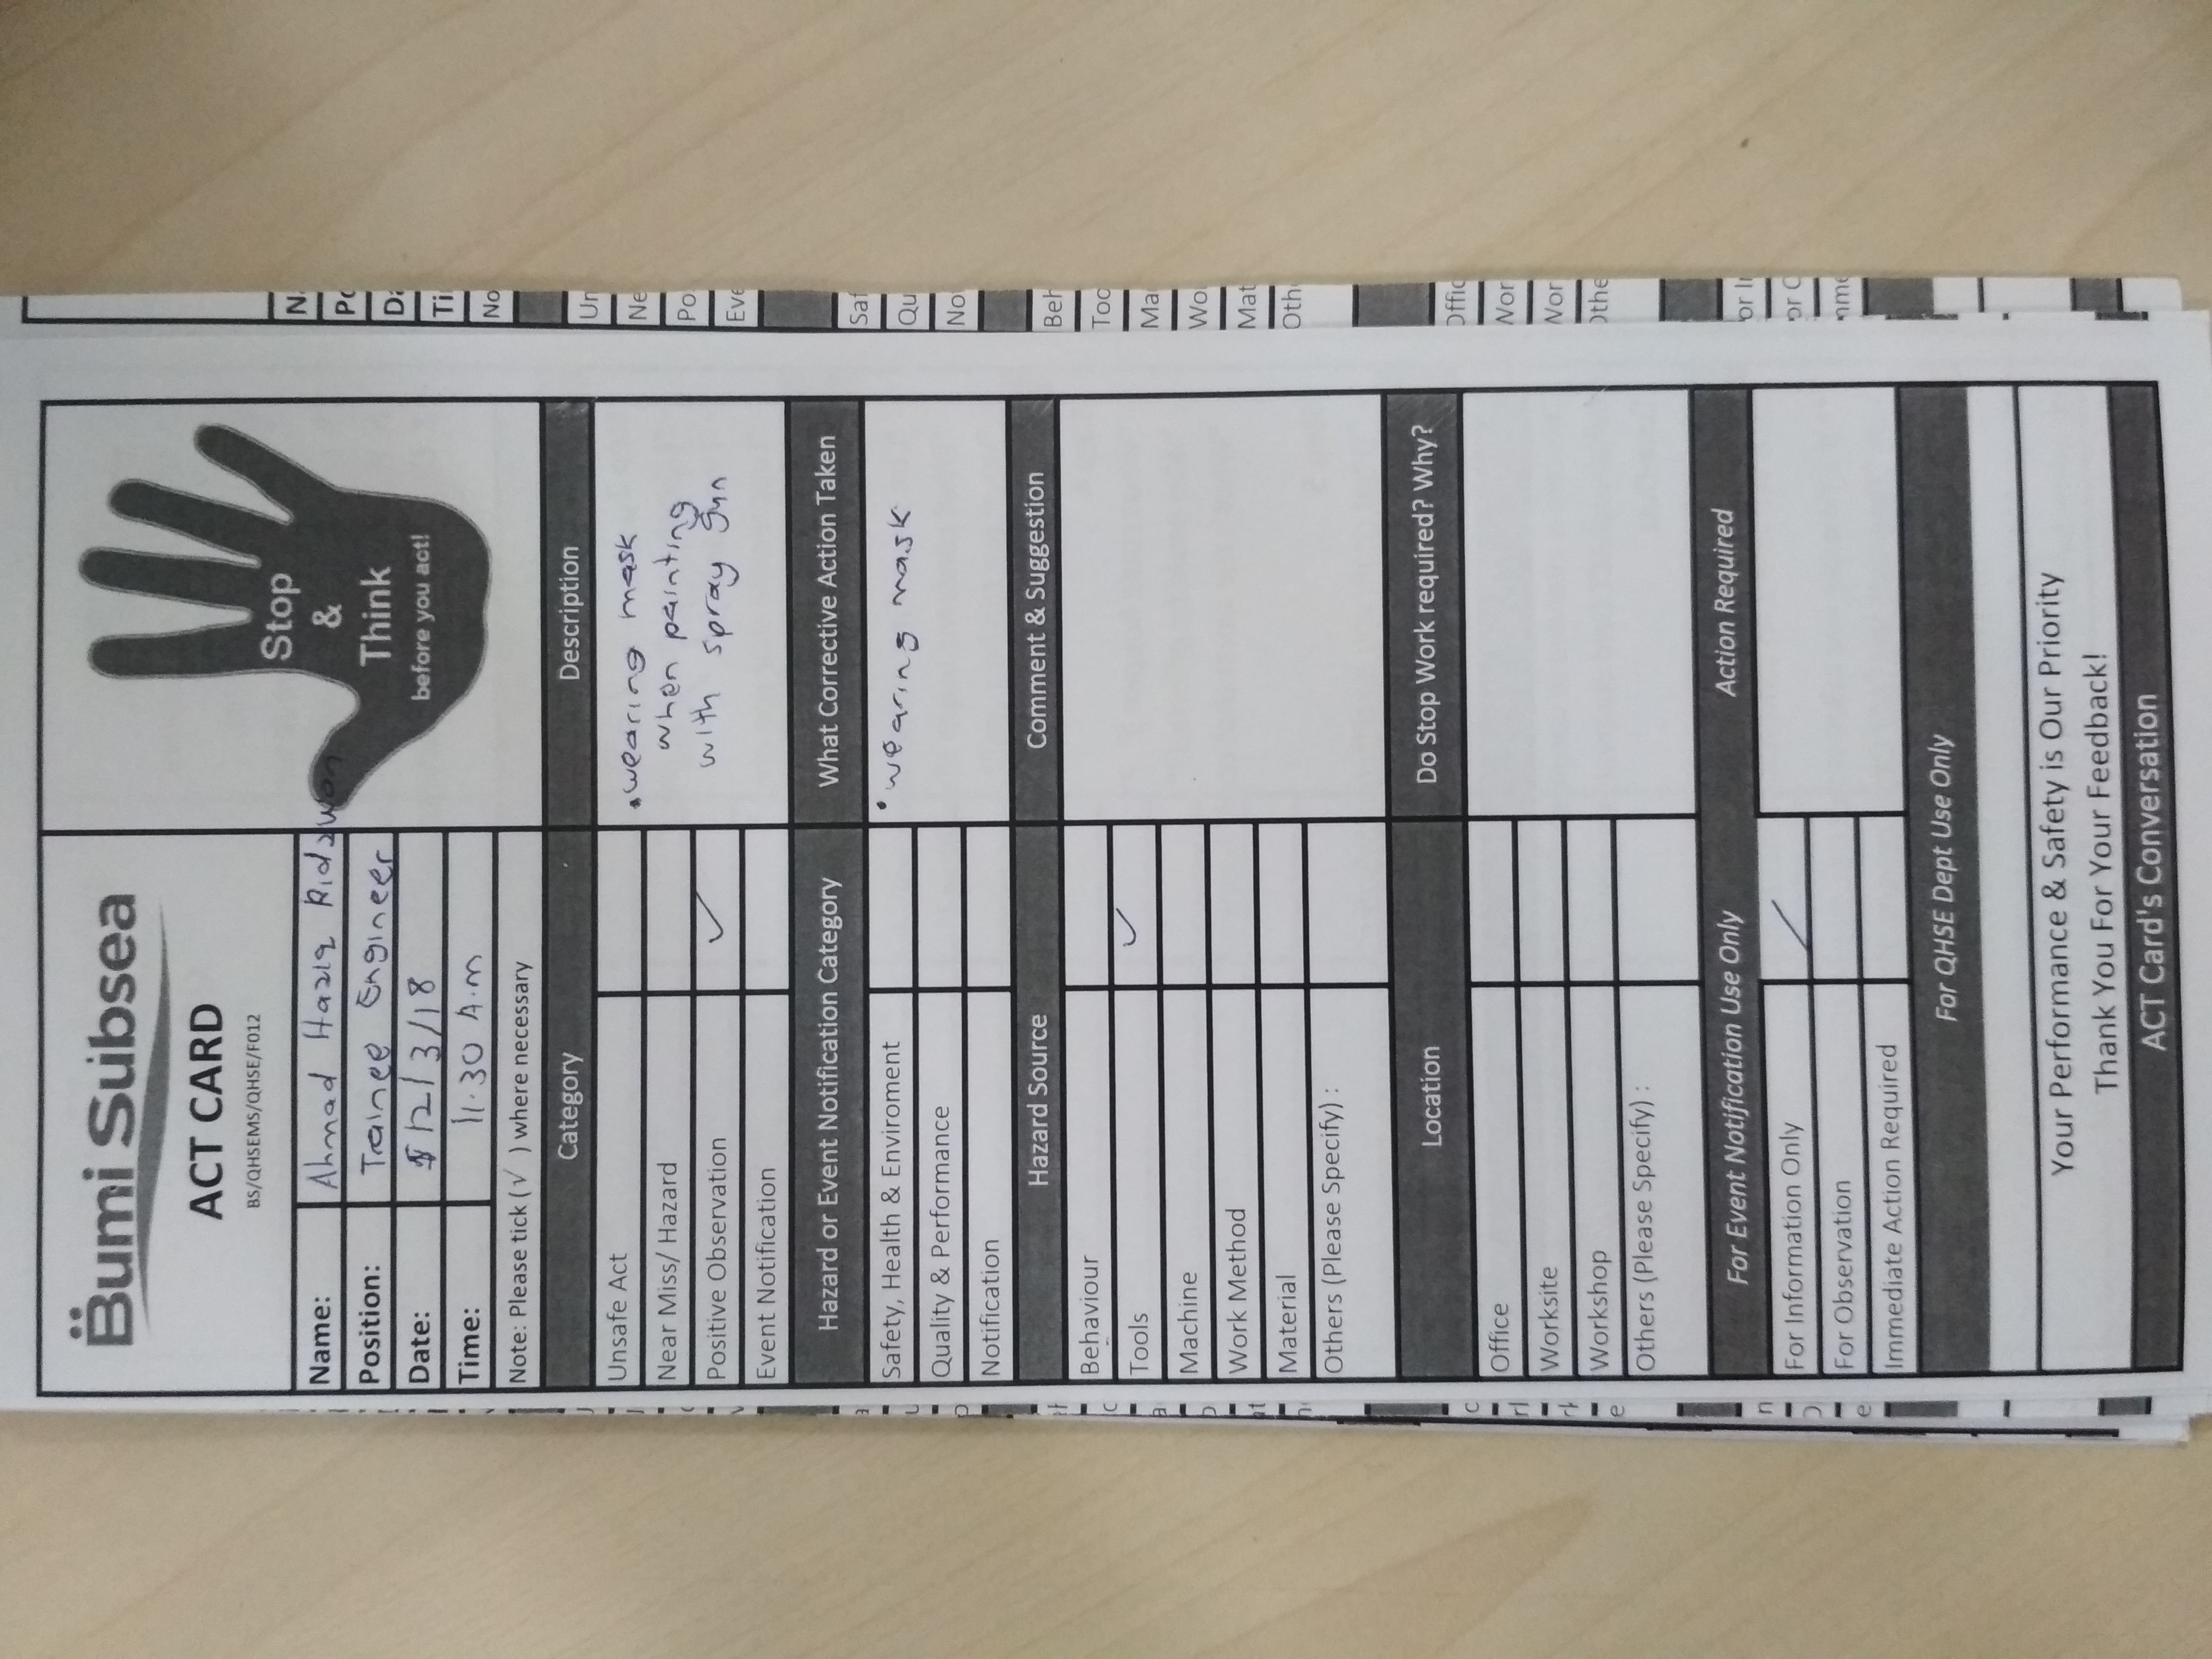 Bumi Subsea
ACT CARD
BS/QHSEMS/QHSE/F012
Stop
&
Think
before you act!
Name: Ahmad Haziq Ridzwan
Position: Trainee Engineer
Date: 12/3/18
Time: 11.30 A.m
Note: Please tick (√ ) where necessary
Category Description
Unsafe Act
Near Miss/ Hazard
Positive Observation ✓
Event Notification
• wearing mask
when painting
with spray gun
Hazard or Event Notification Category What Corrective Action Taken
Safety, Health & Enviroment
Quality & Performance
Notification
• wearing mask
Hazard Source Comment & Suggestion
Behaviour
Tools ✓
Machine
Work Method
Material
Others (Please Specify) :
Location Do Stop Work required? Why?
Office
Worksite
Workshop
Others (Please Specify) :
For Event Notification Use Only Action Required
For Information Only /
For Observation
Immediate Action Required
For QHSE Dept Use Only
Your Performance & Safety is Our Priority
Thank You For Your Feedback!
ACT Card's Conversation